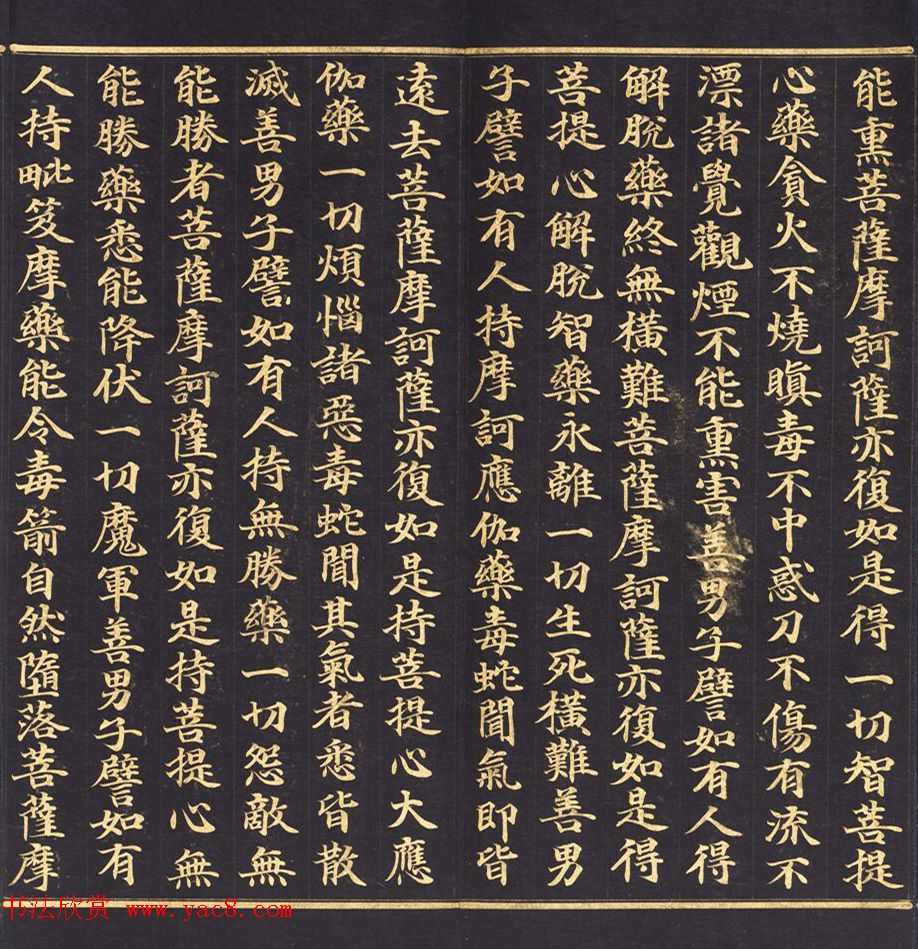 能熏菩薩摩訶薩亦復如是得一切智菩提
心藥貪火不燒瞋毒不中惑刀不傷有流不
漂諸覺觀煙不能熏害善男子譬如有人得
解脫藥終無橫難菩薩摩訶薩亦復如是得
菩提心解脫智藥永離一切生死橫難善男
子譬如有人持摩訶應伽藥毒蛇聞氣即皆
遠去菩薩摩訶薩亦復如是持菩提心大應
伽藥一切煩惱諸惡毒蛇聞其氣者悉皆散
滅善男子譬如有人持無勝藥一切怨敵無
能勝者菩薩摩訶薩亦復如是持菩提心無
能勝藥悉能降伏一切魔軍善男子譬如有
人持毗笈摩藥能令毒箭自然墮落菩薩摩
书法欣赏 www.yac8.com